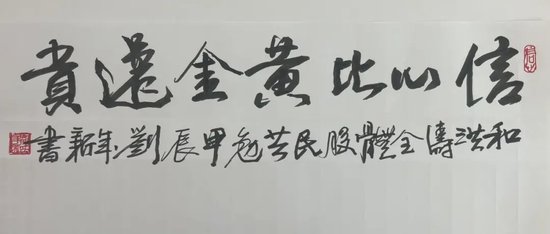 信心比黄金還貴
和洪濤全體股民共勉甲辰劉年新書